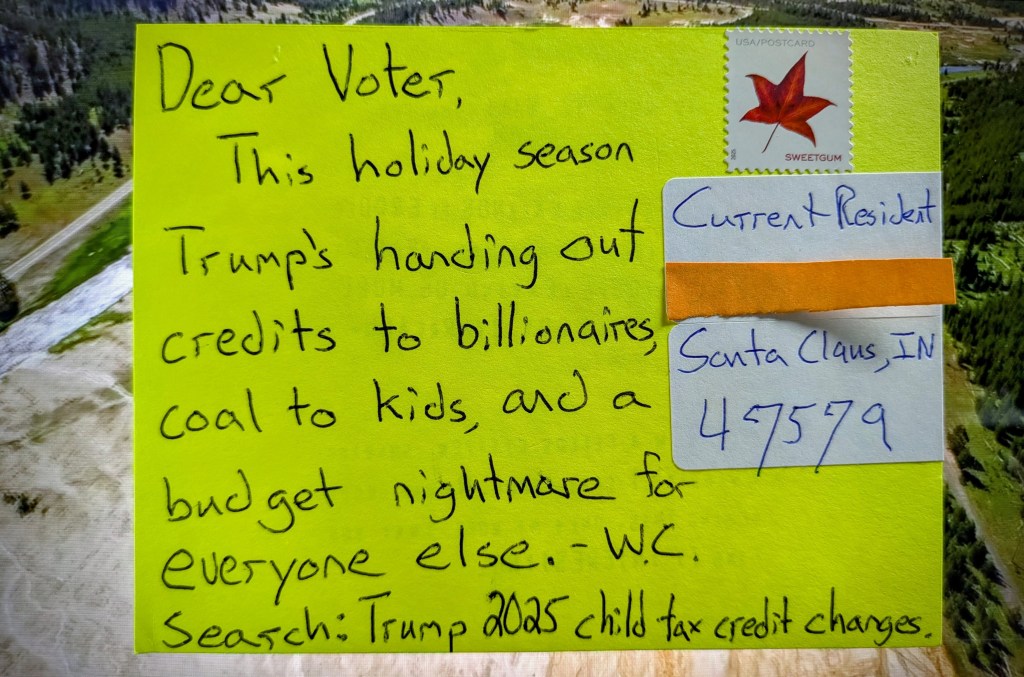 Dear Voter,
This holiday season
Trump's handing out
credits to billionaires,
coal to kids, and a
budget nightmare for
everyone else. - W.C.
Search: Trump 2025 child tax credit changes.
USA/POSTCARD
2025
SWEETGUM
Current Resident
Santa Claus, IN
47579